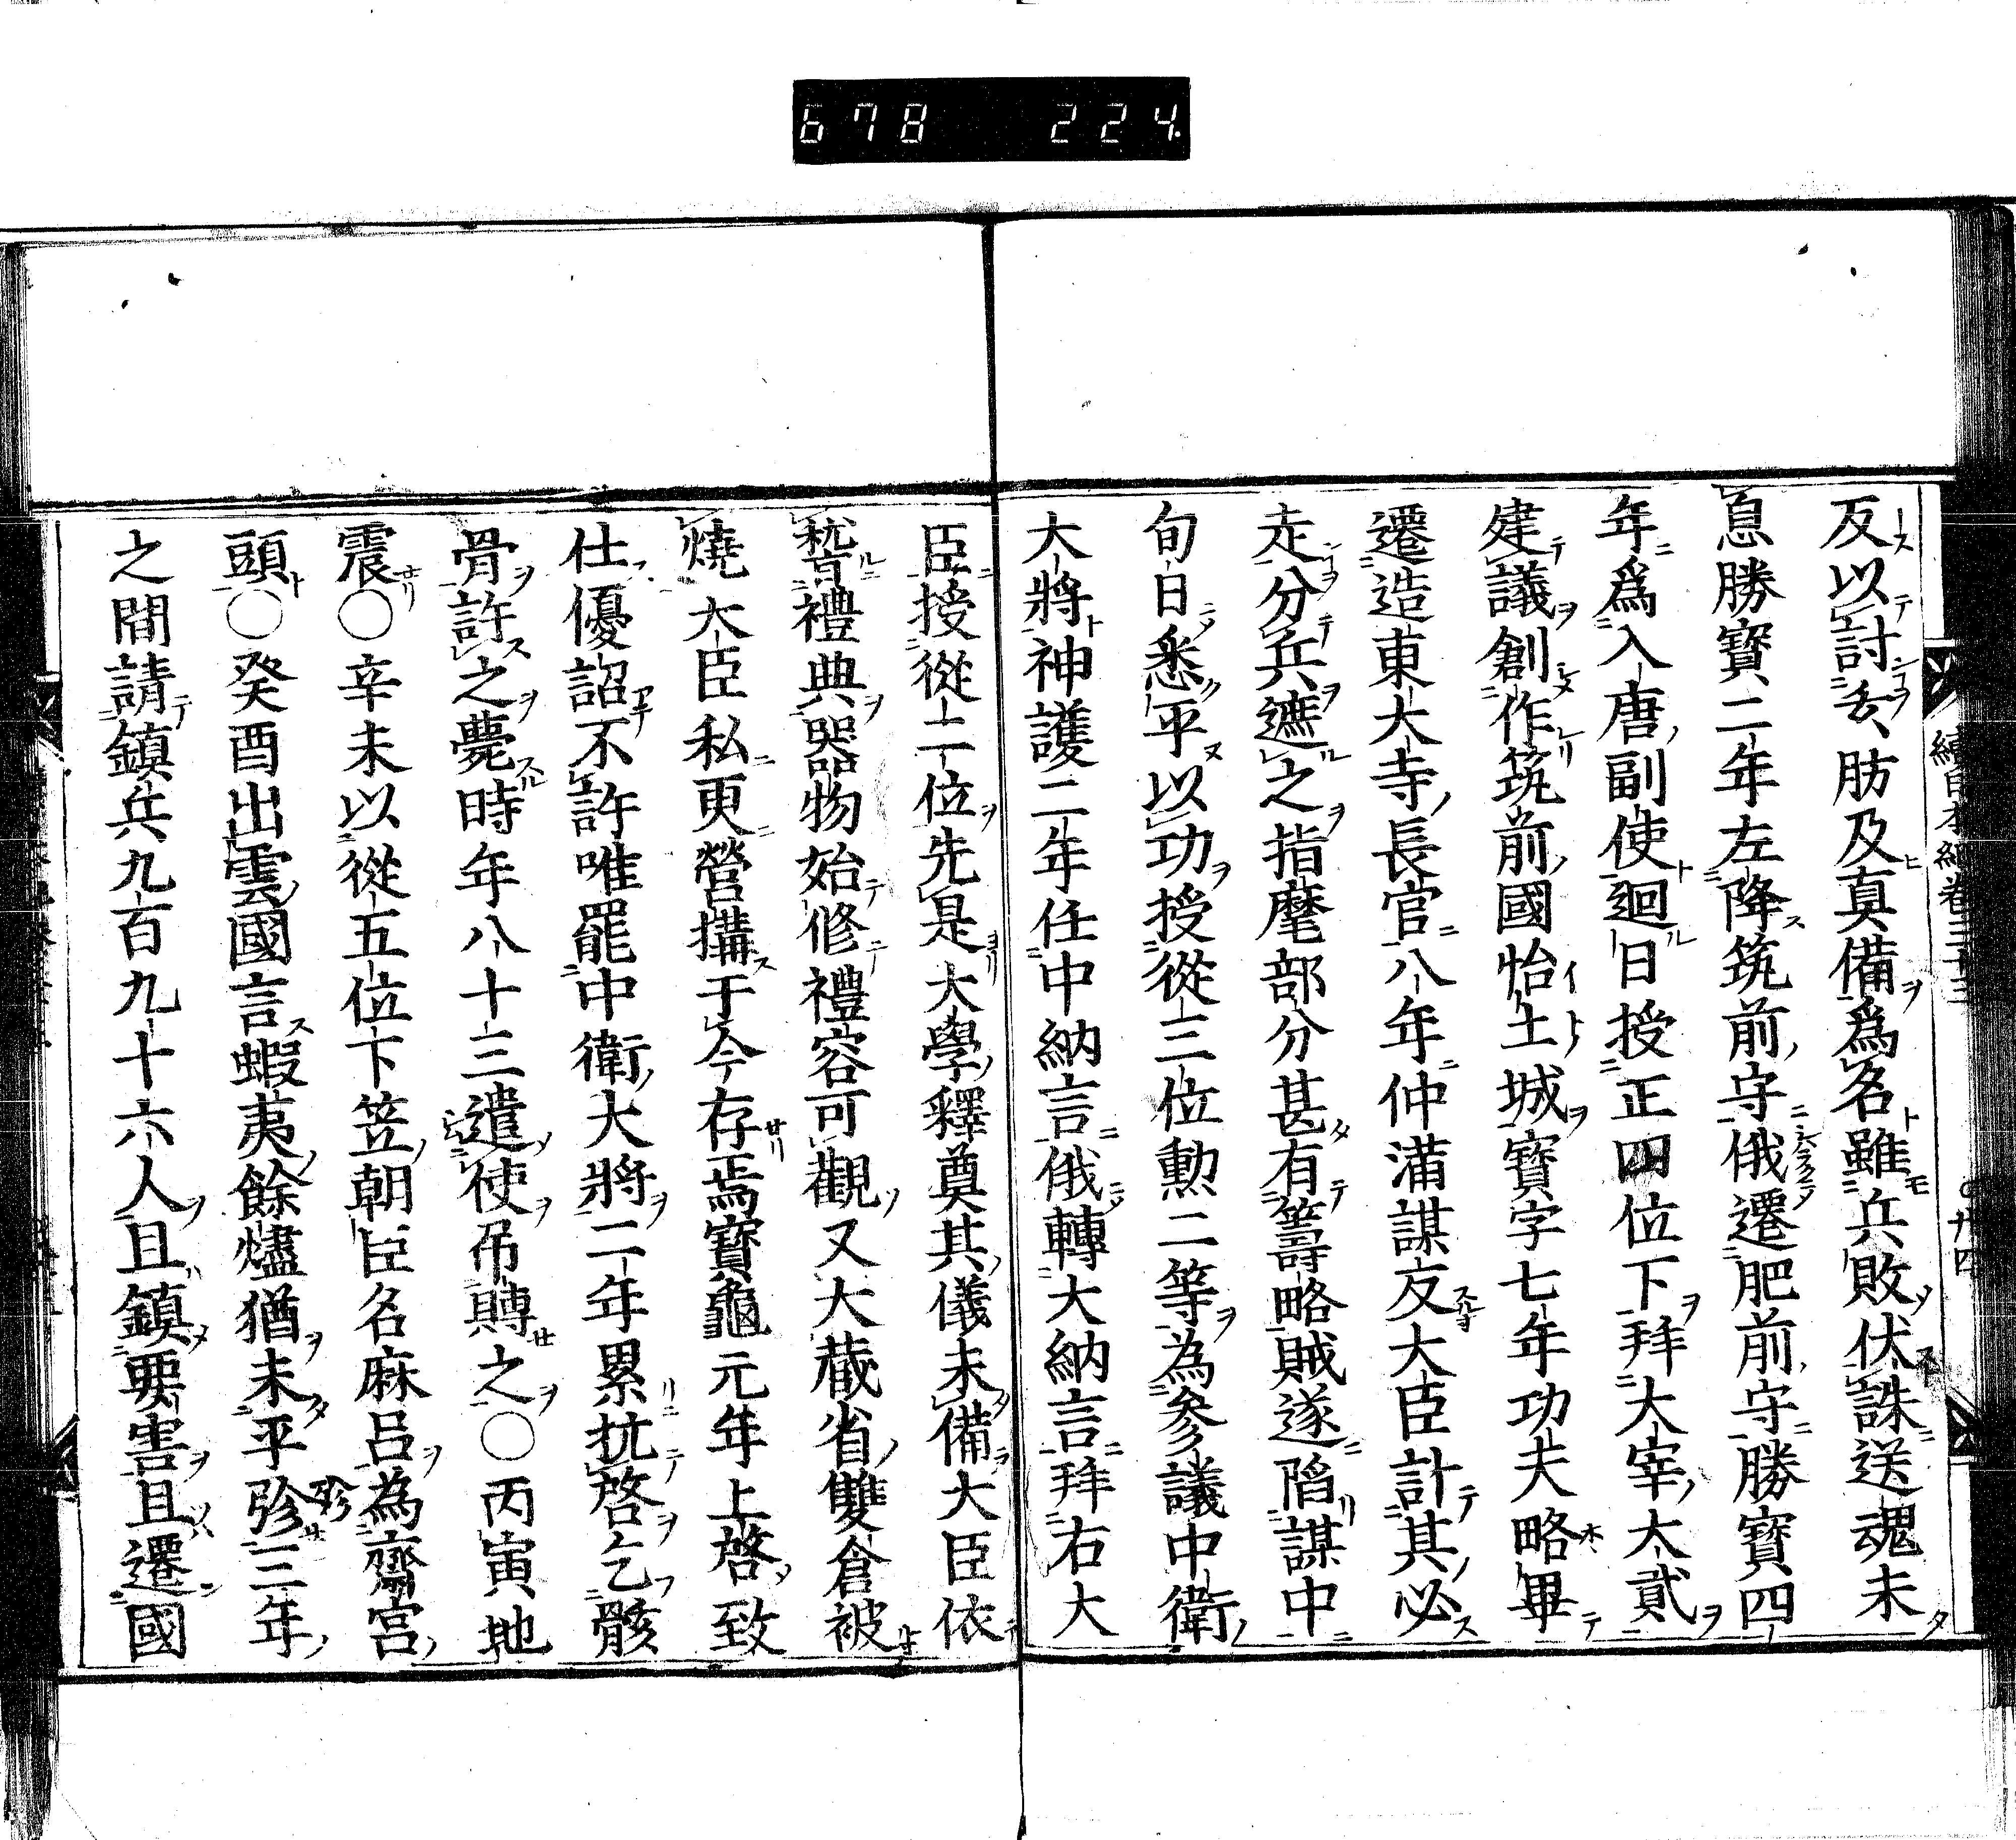 678 224
反以討玄肪及真備爲名雖兵敗伏誅送魂未
息勝寶二年左降筑前守俄遷肥前守勝寶四
年爲入唐副使廻日授正四位下拜大宰大貳
建議創作筑前國怡土城寶字七年功夫略畢
遷造東大寺長官八年仲滿謀反大臣計其必
走分兵遮之指麾部分甚有籌略賊遂陷謀中
旬日悉平以功授從三位勳二等為參議中衛
大將神護二年任中納言俄轉大納言拜右大
臣授從二位先是大學釋奠其儀未備大臣依
稽禮典器物始修禮容可觀又大藏省雙倉被
燒大臣私更營構于今存焉寶龜元年上啓致
仕優詔不許唯罷中衛大將二年累抗啓乞骸
骨許之薨時年八十三遣使吊賻之○丙寅地
震○辛未以從五位下笠朝臣名麻呂為齋宮
頭○癸酉出雲國言蝦夷餘燼猶未平殄三年
之間請鎮兵九百九十六人且鎮要害且遷國